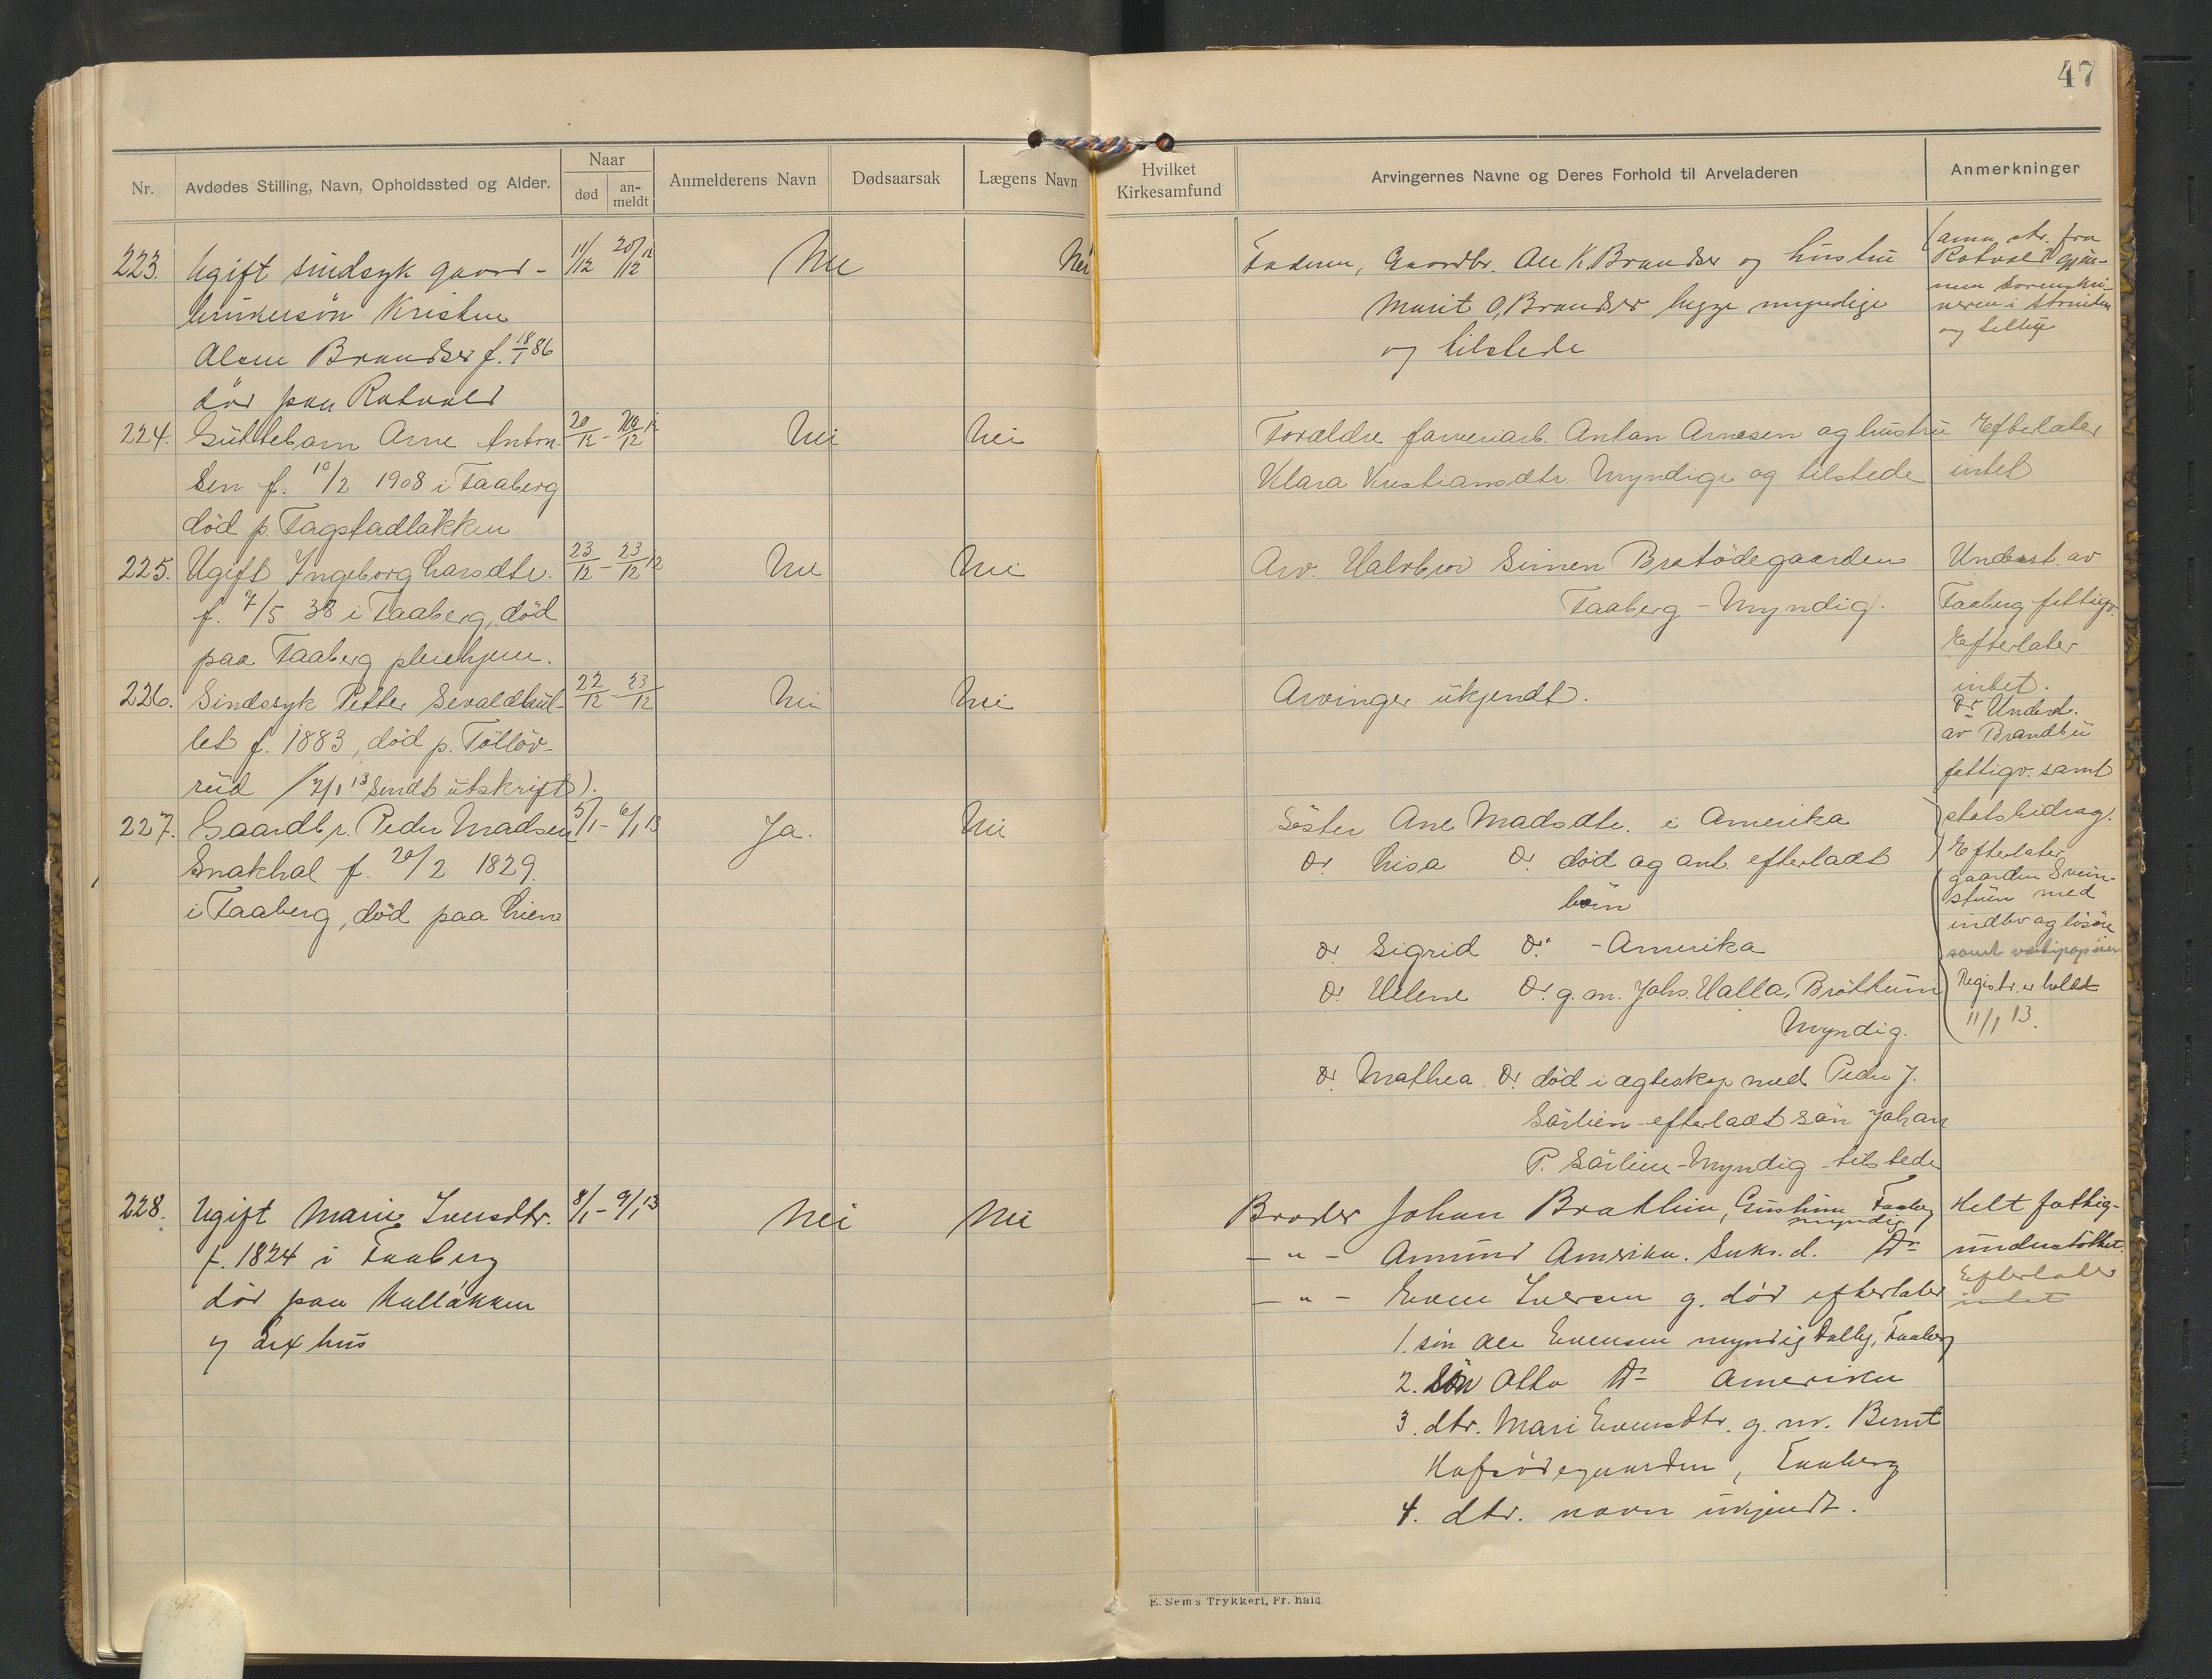 47
Nr.
Avdødes Stilling, Navn, Opholdssted og Alder.
Naar
død
an-
meldt
Anmelderens Navn
Dødsaarsak
Lægens Navn
Hvilket
Kirkesamfund
Arvingernes Navne og Deres Forhold til Arveladeren
Anmerkninger
223. Ugift sindsyk gaard-
brukersøn Kristen
Olsen Brandser f. 18/1 86
død paa Rotvold
11/12 20/12 12
Nei
Nei
Faderen, Gaardbr. Ole K. Brandser og hustru
Marit O. Brandser begge myndige
og tilstede
(anm. str. fra
Rotvold gjen-
nem Sorenskri-
veren i Strinden
og Selbu
224. Guttebarn Arne Anton-
sen f. 10/2 1908 i Faaberg
død p. Fagstadløkken
20/12 - 20/12 12
Nei
Nei
Forældre farveriarb. Anton Arnesen og hustru
Klara Kristiansdtr. Myndige og tilstede
Efterlater
intet
225. Ugift Ingeborg Larsdtr.
f. 7/5 38 i Faaberg, død
paa Faaberg pleiehjem.
23/12 - 23/12 12
Nei
Nei
Arv. Halvbror Simen Brotødegaarden
Faaberg - Myndig.
Underst. av
Faaberg fattigv.
Efterlater
intet.
226. Sindssyk Petter Sevaldhul-
let f. 1883, død p. Tolløv-
rud (2/1 13 sendt utskrift).
22/12 - 23/12
Nei
Nei
Arvinger ukjendt.
Dr Underst.
av Brandbu
fattigv. samt
statsbidrag.
227. Gaardbr. Peder Madsen
Smakhal f. 20/2 1829.
i Faaberg, død paa Lien
5/1 - 6/1 13
Ja.
Nei
Søster Ane Madsdtr. i Amerika
Do. Lisa Do. død og ant. efterladt
børn
Do. Sigrid Do. - Amerika
Do. Helene Do. g.m. Johs. Halla, Brøttum
Myndig.
Do. Mathea Do. død i ægteskap med Peder J.
Sørlien - efterladt søn Johan
P. Sørlien - Myndig - tilstede
Efterlater
gaarden Svein-
stuen med
indbo og løsøre
samt værdipapirer
Registr. er holdt
11/1 13.
228. Ugift Marie Iversdtr.
f. 1824 i Faaberg
død paa Kalløkken
8/1 - 9/1 13
Nei
Nei
Broder Johan Brathlien, Faaberg
myndig
- " - Amund Amerika. Do
- " - Even Iversen g. død efterlater
1. søn Ole Evensen myndig Dalby, Faaberg
2. Søn Otto Do Amerika
3. dtr. Mari Evensdtr. g. m. Bernt
Hafsødegaarden, Faaberg
4. dtr. navn ukjendt.
Helt fattig-
understøttet.
Efterlater
intet
E. Sem's Trykkeri, Fr.hald.